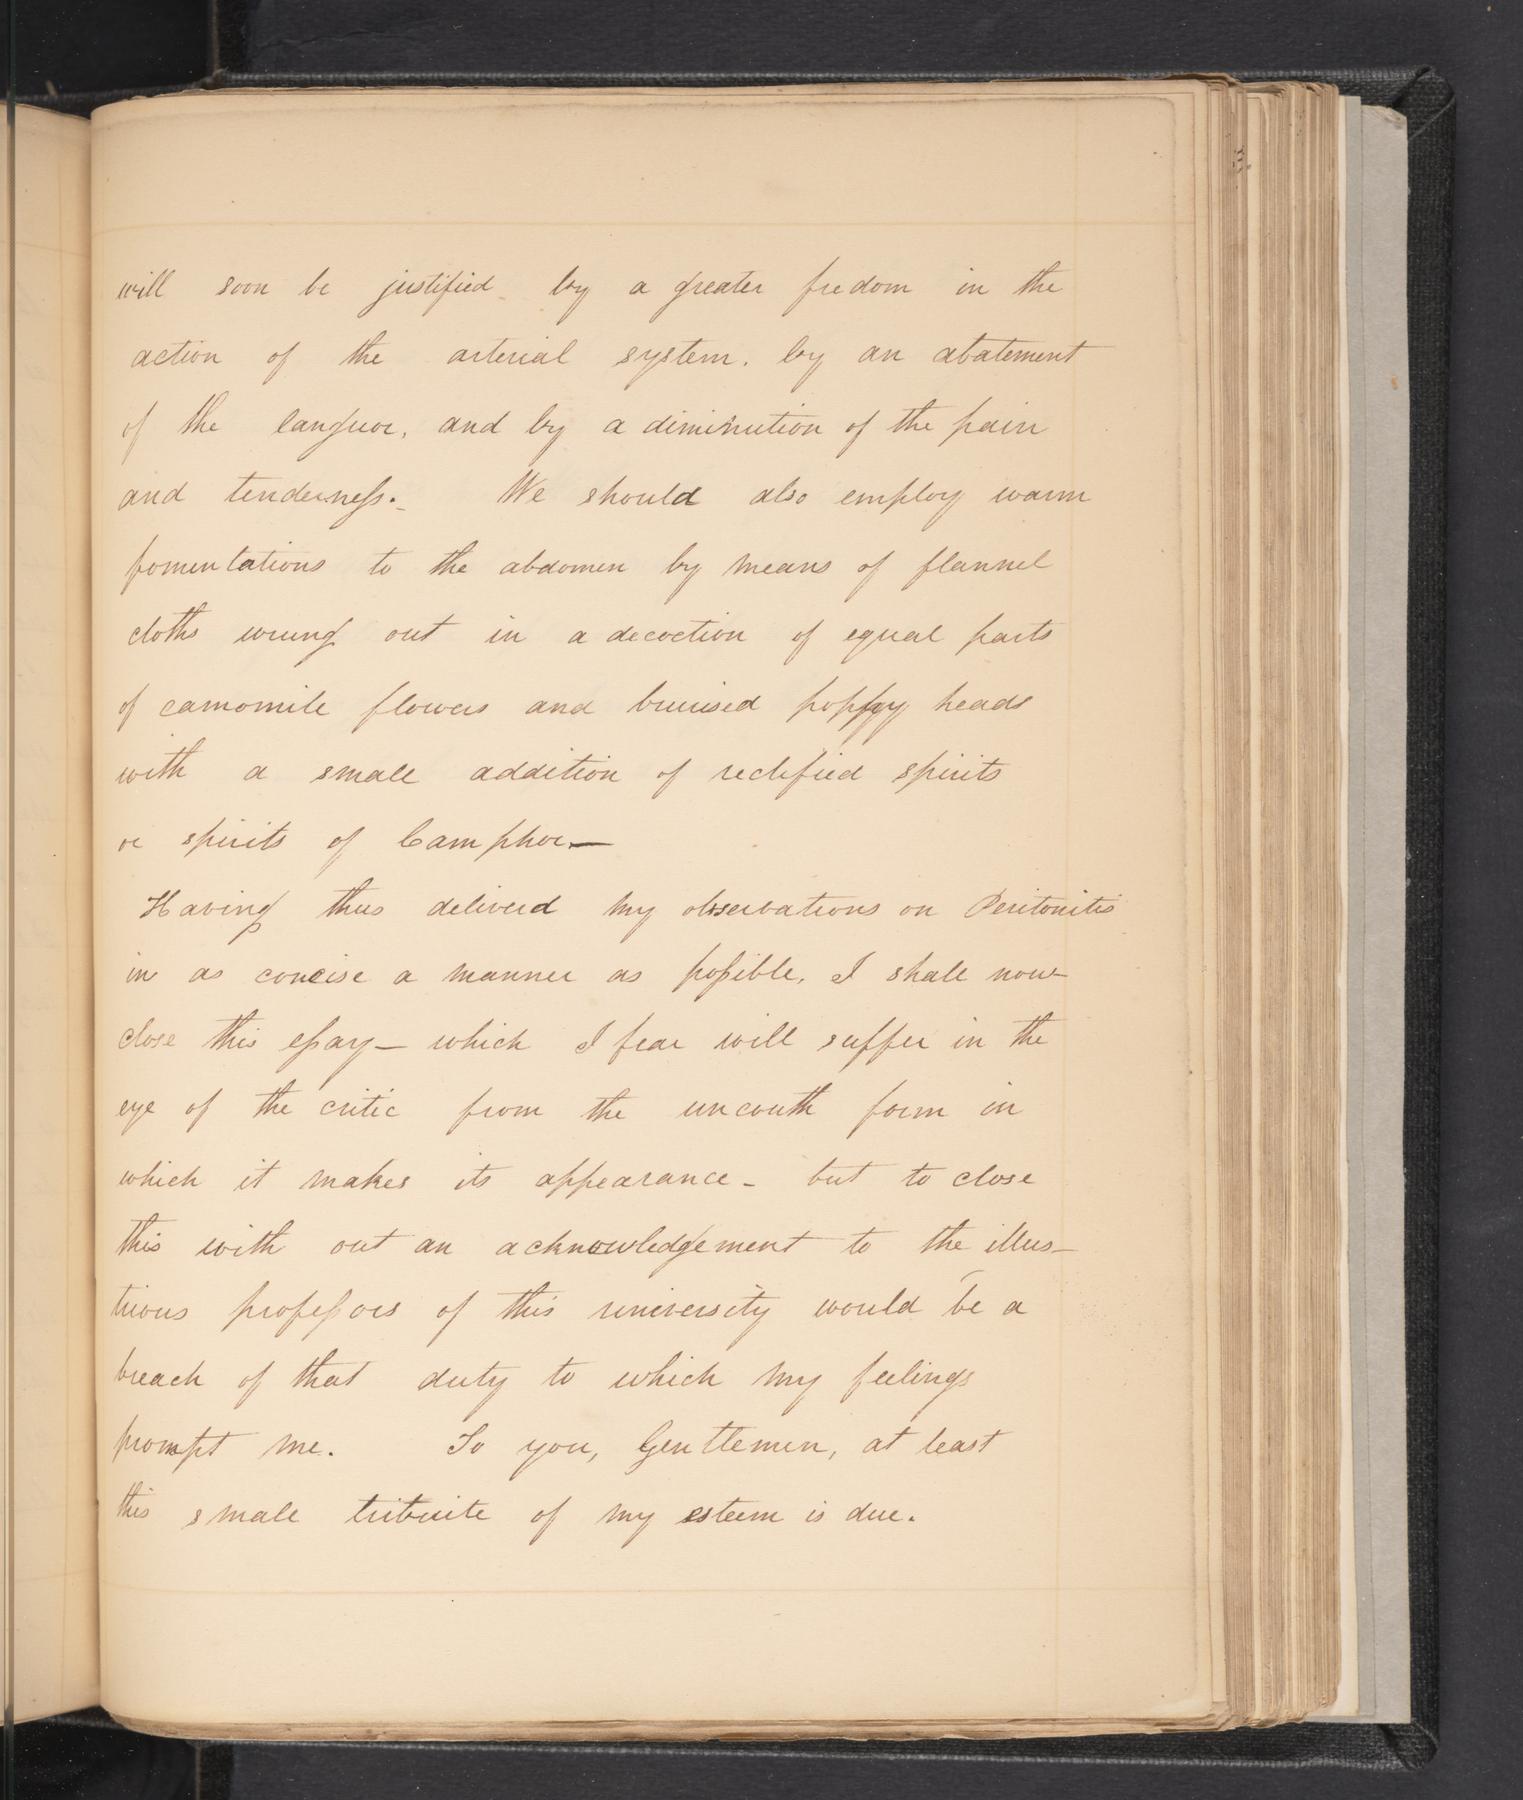 will soon be justified by a greater fredom in the
action of the arterial system. by an abatement
of the languor, and by a diminution of the pain
and tenderneſs. We should also employ warm
fomentations to the abdomen by means of flannel
cloths wrung out in a decoction of equal parts
of camomile flowers and bruised poppy heads
with a small addition of rectified spirits
or spirits of Camphor—
Having thus deliverd my observations on Peritonitis
in as concise a manner as poſsible, I shall now
close this eſsay— which I fear will suffer in the
eye of the critic from the uncouth form in
which it makes its appearance - but to close
this with out an acknowledgement to the illus-
trious profeſsors of this university would be a
breach of that duty to which my feelings
prompt me. To you, Gentlemen, at least
this small tribuite of my esteem is due.